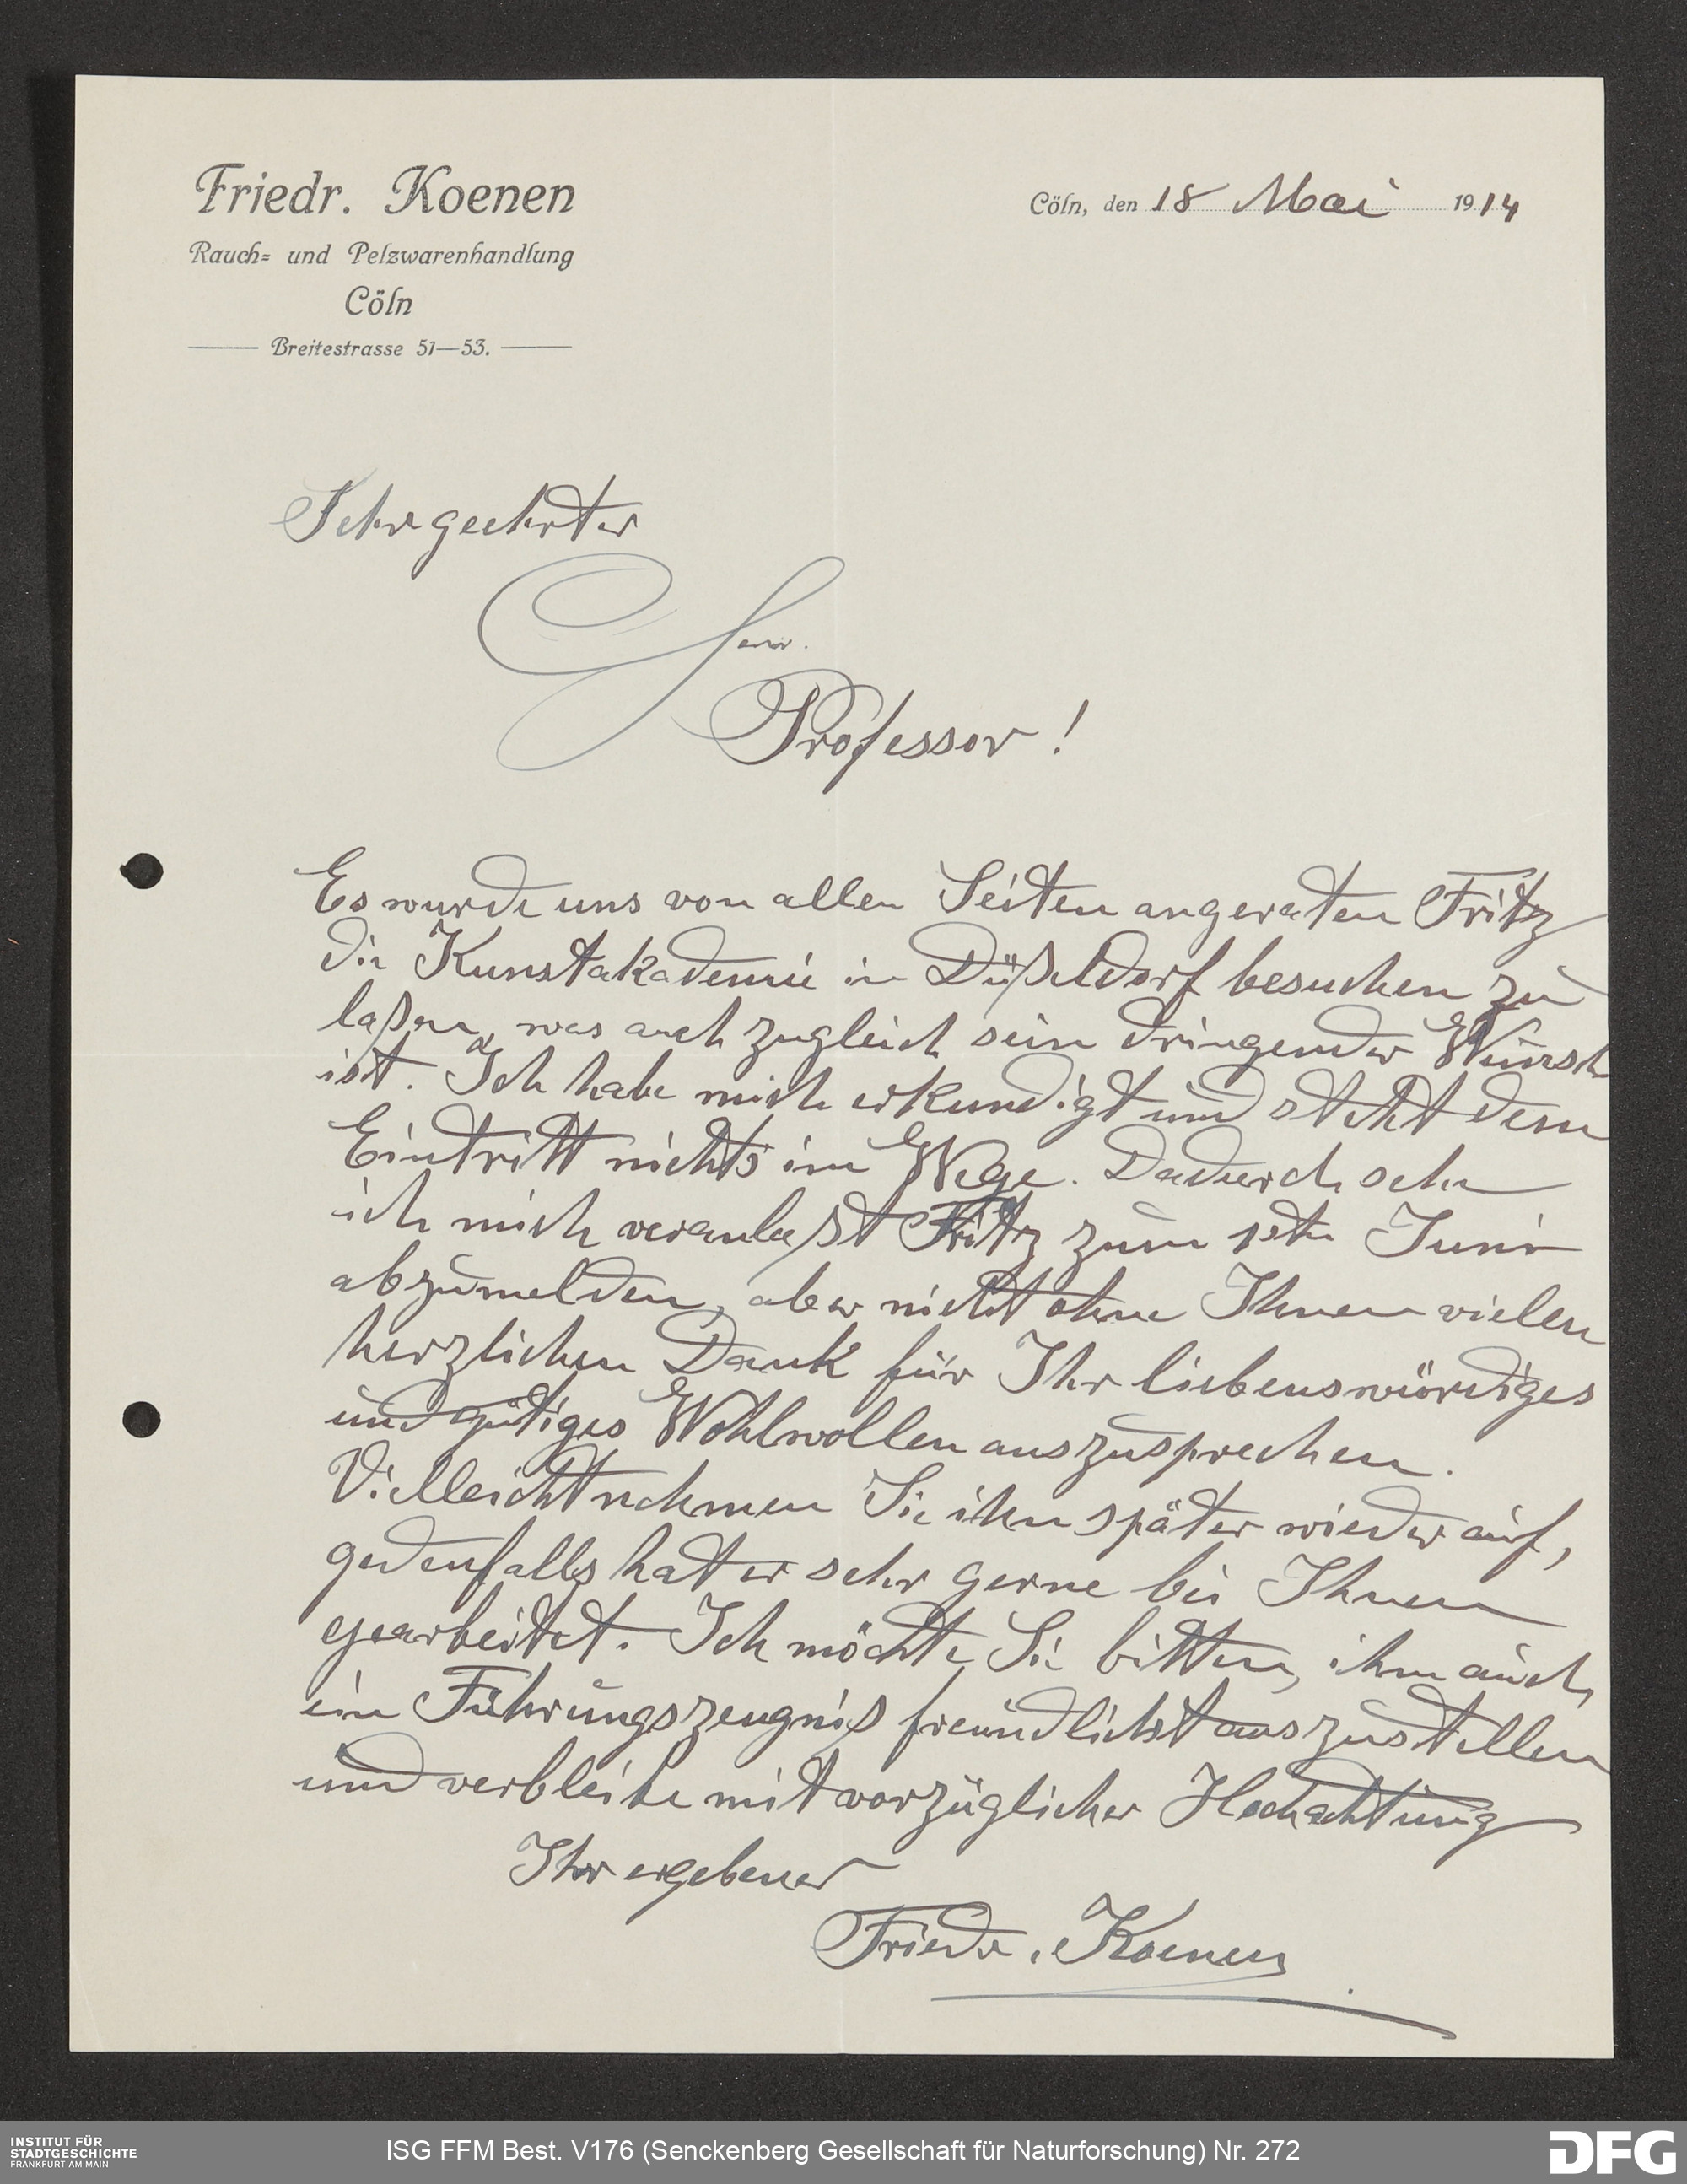 Friedr. Koenen
Rauch= und Pelzwarenhandlung
Cöln
Breitestrasse 51—53.
Cöln, den 18 Mai 1914
Sehr geehrter
Herr.
Professor!
Es wurde uns von allen Seiten angeraten Fritz
die Kunstakademie in Düßeldorf besuchen zu
laßen, was auch zugleich sein dringender Wunsch
ist. Ich habe mich erkundigt und steht dem
Eintritt nichts im Wege. Dadurch sehe
ich mich veranlaßt Fritz zum 1ste Juni
abzumelden, aber nicht ohne Ihnen vielen
herzlichen Dank für Ihr liebenswürdiges
und gütiges Wohlwollen auszusprechen.
Vielleicht nehmen Sie ihn später wieder auf,
gedenfalls hat er sehr gerne bei Ihnen
gearbeitet. Ich möchte Sie bitten, ihm auch
ein Führungszeugniß freundlichst auszustellen
und verbleibe mit vorzüglicher Hochachtung
Ihr ergebener
Friedr. Koenen
INSTITUT FÜR
STADTGESCHICHTE
FRANKFURT AM MAIN
ISG FFM Best. V176 (Senckenberg Gesellschaft für Naturforschung) Nr. 272
DFG